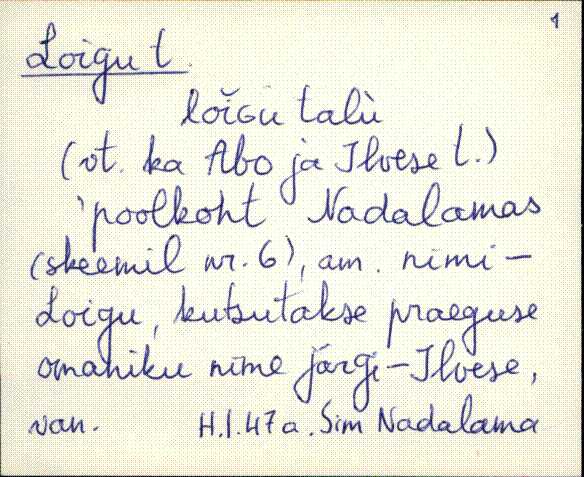 1
Loigu t.
loĭGu talù
(vt. ka Abo ja Ilvese t.)
'poolkoht Nadalamas
(skeemil nr. 6), am. nimi –
Loigu, kutsutakse praeguse
omaniku nime järgi – Ilvese,
van. H.I. 47 a. Sim Nadalama